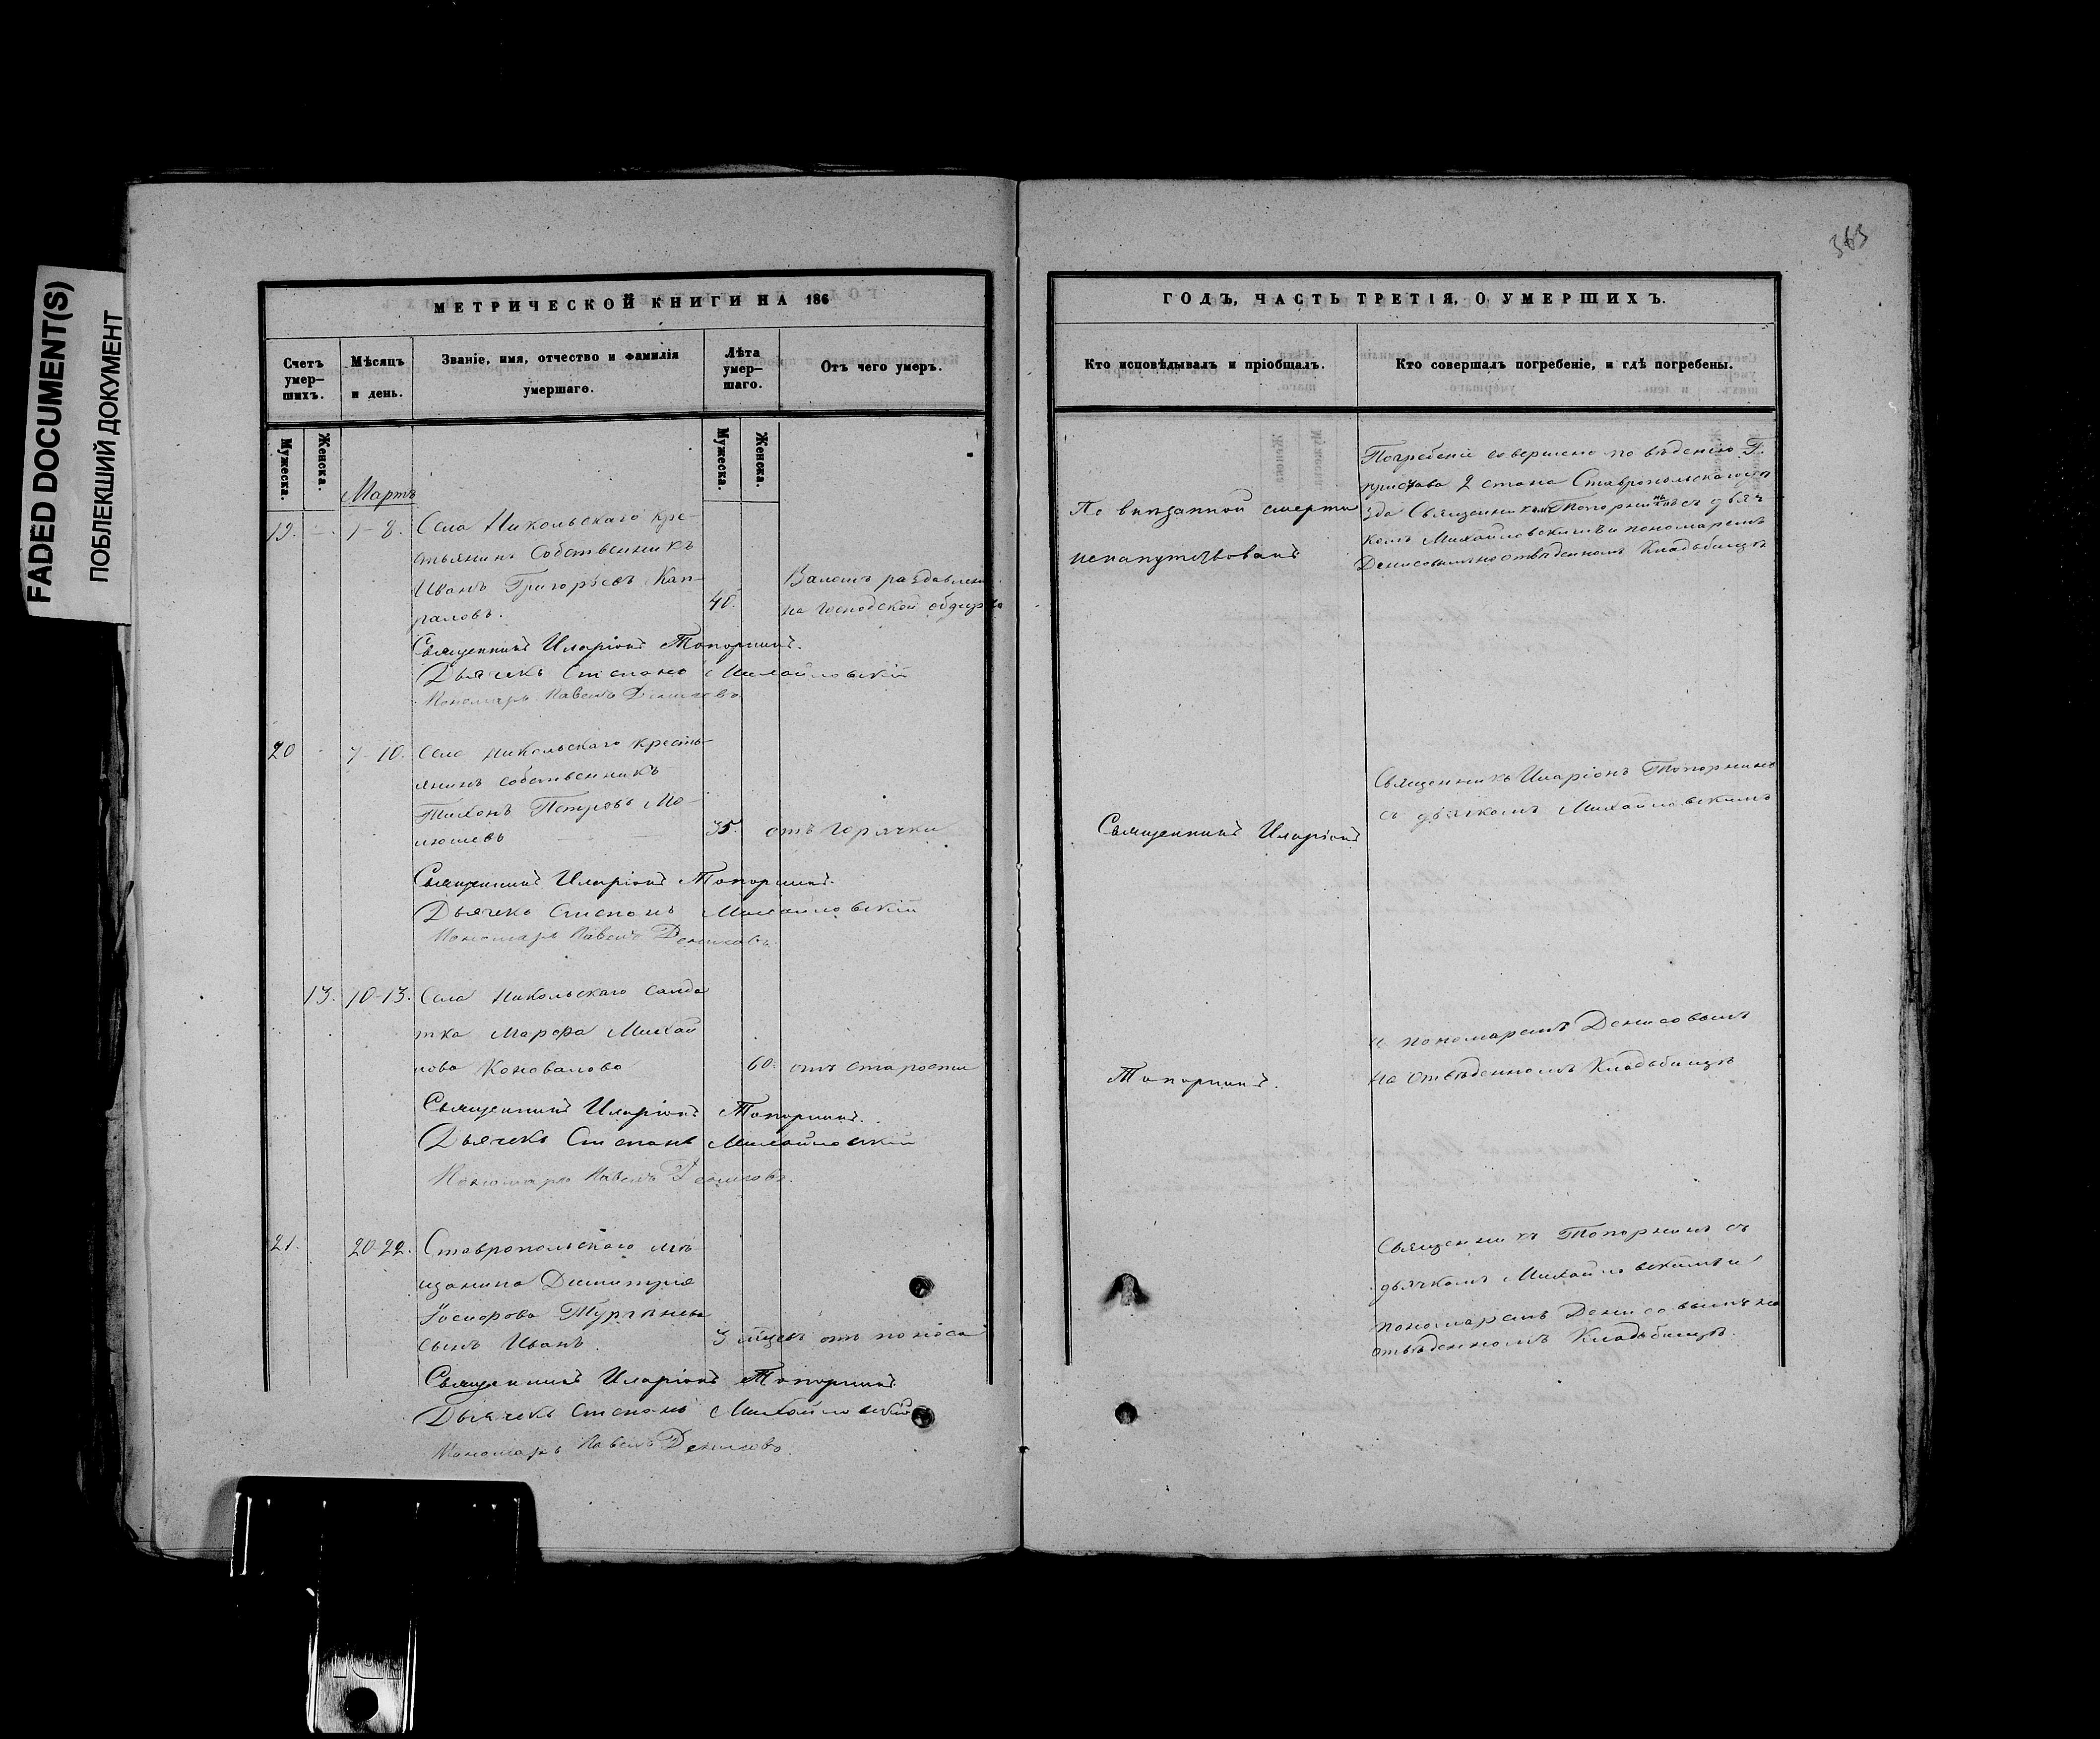 FADED DOCUMENT(S)
ПОБЛЕКШИЙ ДОКУМЕНТ
363
МЕТРИЧЕСКОЙ КНИГИ НА 186
Счетъ умер-шихъ.
Мѣсяцъ и день.
Званіе, имя, отчество и фамилія умершаго.
Лѣта умер-шаго.
Отъ чего умеръ.
Мужеска.
Женска.
Мужеска.
Женска.
Мартъ
19. 1-8. Села Никольскаго кре-
стьянинъ Собственникъ
Иванъ Григорьевъ Кап-
раловъ. Валомъ раздавленъ
на Господской
Священникъ Иларіонъ Топорнинъ.
Дьячекъ Степанъ Михайловскій
Пономарь Павелъ Денисовъ
20 7-10. Села Никольскаго кресть-
янинъ собственникъ
Тихонъ Петровъ
35. отъ горячки
Священникъ Иларіонъ Топорнинъ.
Дьячекъ Степанъ Михайловскій
Пономарь Павелъ Денисовъ.
13. 10-13. Села Никольскаго солда
тка Марфа Михай
лова Коновалова 60. отъ старости
Священникъ Иларіонъ Топорнинъ.
Дьячекъ Степанъ Михайловскій
Пономарь Павелъ Денисовъ.
21. 20-22. Ставропольскаго мѣ
щанина Димитрія
сынъ Иванъ. 3 мѣцъ отъ поноса
Священникъ Иларіонъ Топорнинъ
Дьячекъ Степанъ Михайловскій
Пономарь Павелъ Денисовъ.
ГОДЪ, ЧАСТЬ ТРЕТІЯ, О УМЕРШИХЪ.
Кто исповѣдывалъ и пріобщалъ.
Кто совершалъ погребеніе, и гдѣ погребены.
По внезапной смерти
ненапутствованъ
Погребеніе совершено по вѣденію Г.
пристава 2 стана Ставропольскаго
Священникомъ Топорнинымъ съ дьяч
комъ Михайловскимъ и пономаремъ
Денисовымъ на отведенномъ Кладбищѣ
Священникъ Иларіонъ
Священникъ Иларіонъ Топорнинъ
съ дьячкомъ Михайловскимъ
Топорнинъ.
и пономаремъ Денисовымъ
на отведенномъ Кладбищѣ
Священникъ Топорнинъ съ
дьячкомъ Михайловскимъ и
пономаремъ Денисовымъ на
отведенномъ Кладбищѣ.